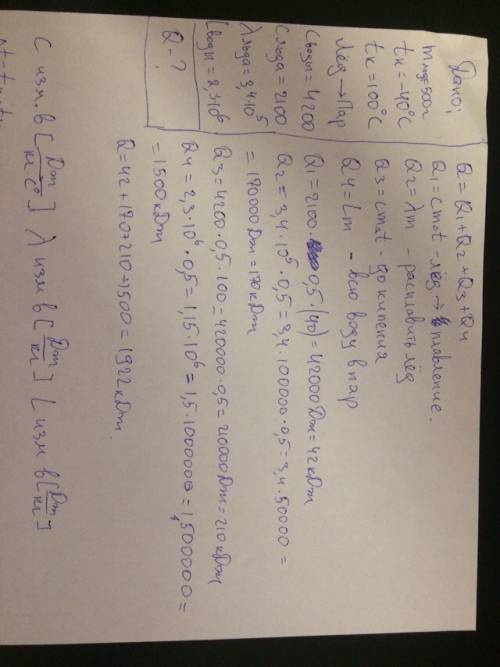 Дано:
mльда=500г
tк=-40°C
tк=100°C
лёд → Пар
Cводы = 4200
Cльда = 2100
λльда = 3,4·10⁵
Lводы = 2,3·10⁶
Q - ?
Q = Q1 + Q2 + Q3 + Q4
Q1 = cmot - лёд → плавление.
Q2 = λm - расплавить лёд
Q3 = cmot - до кипения
Q4 = Lm - всю воду в пар
Q1 = 2100· 0,5 (40) = 42000Дж = 42 кДж
Q2 = 3,4·10⁵·0,5 = 3,4·100000·0,5 = 3,4·50000 =
= 170000Дж = 170кДж
Q3 = 4200·0,5·100 = 420000·0,5 = 210000Дж = 210кДж
Q4 = 2,3·10⁶·0,5 = 1,15·10⁶ = 1,5·1000000 = 1,500000 =
= 1500кДж
Q = 42 + 170 + 210 + 1500 = 1922кДж.
C изм. в [Дж/кг·C°] λ изм в [Дж/кг] L изм в [Дж/кг]